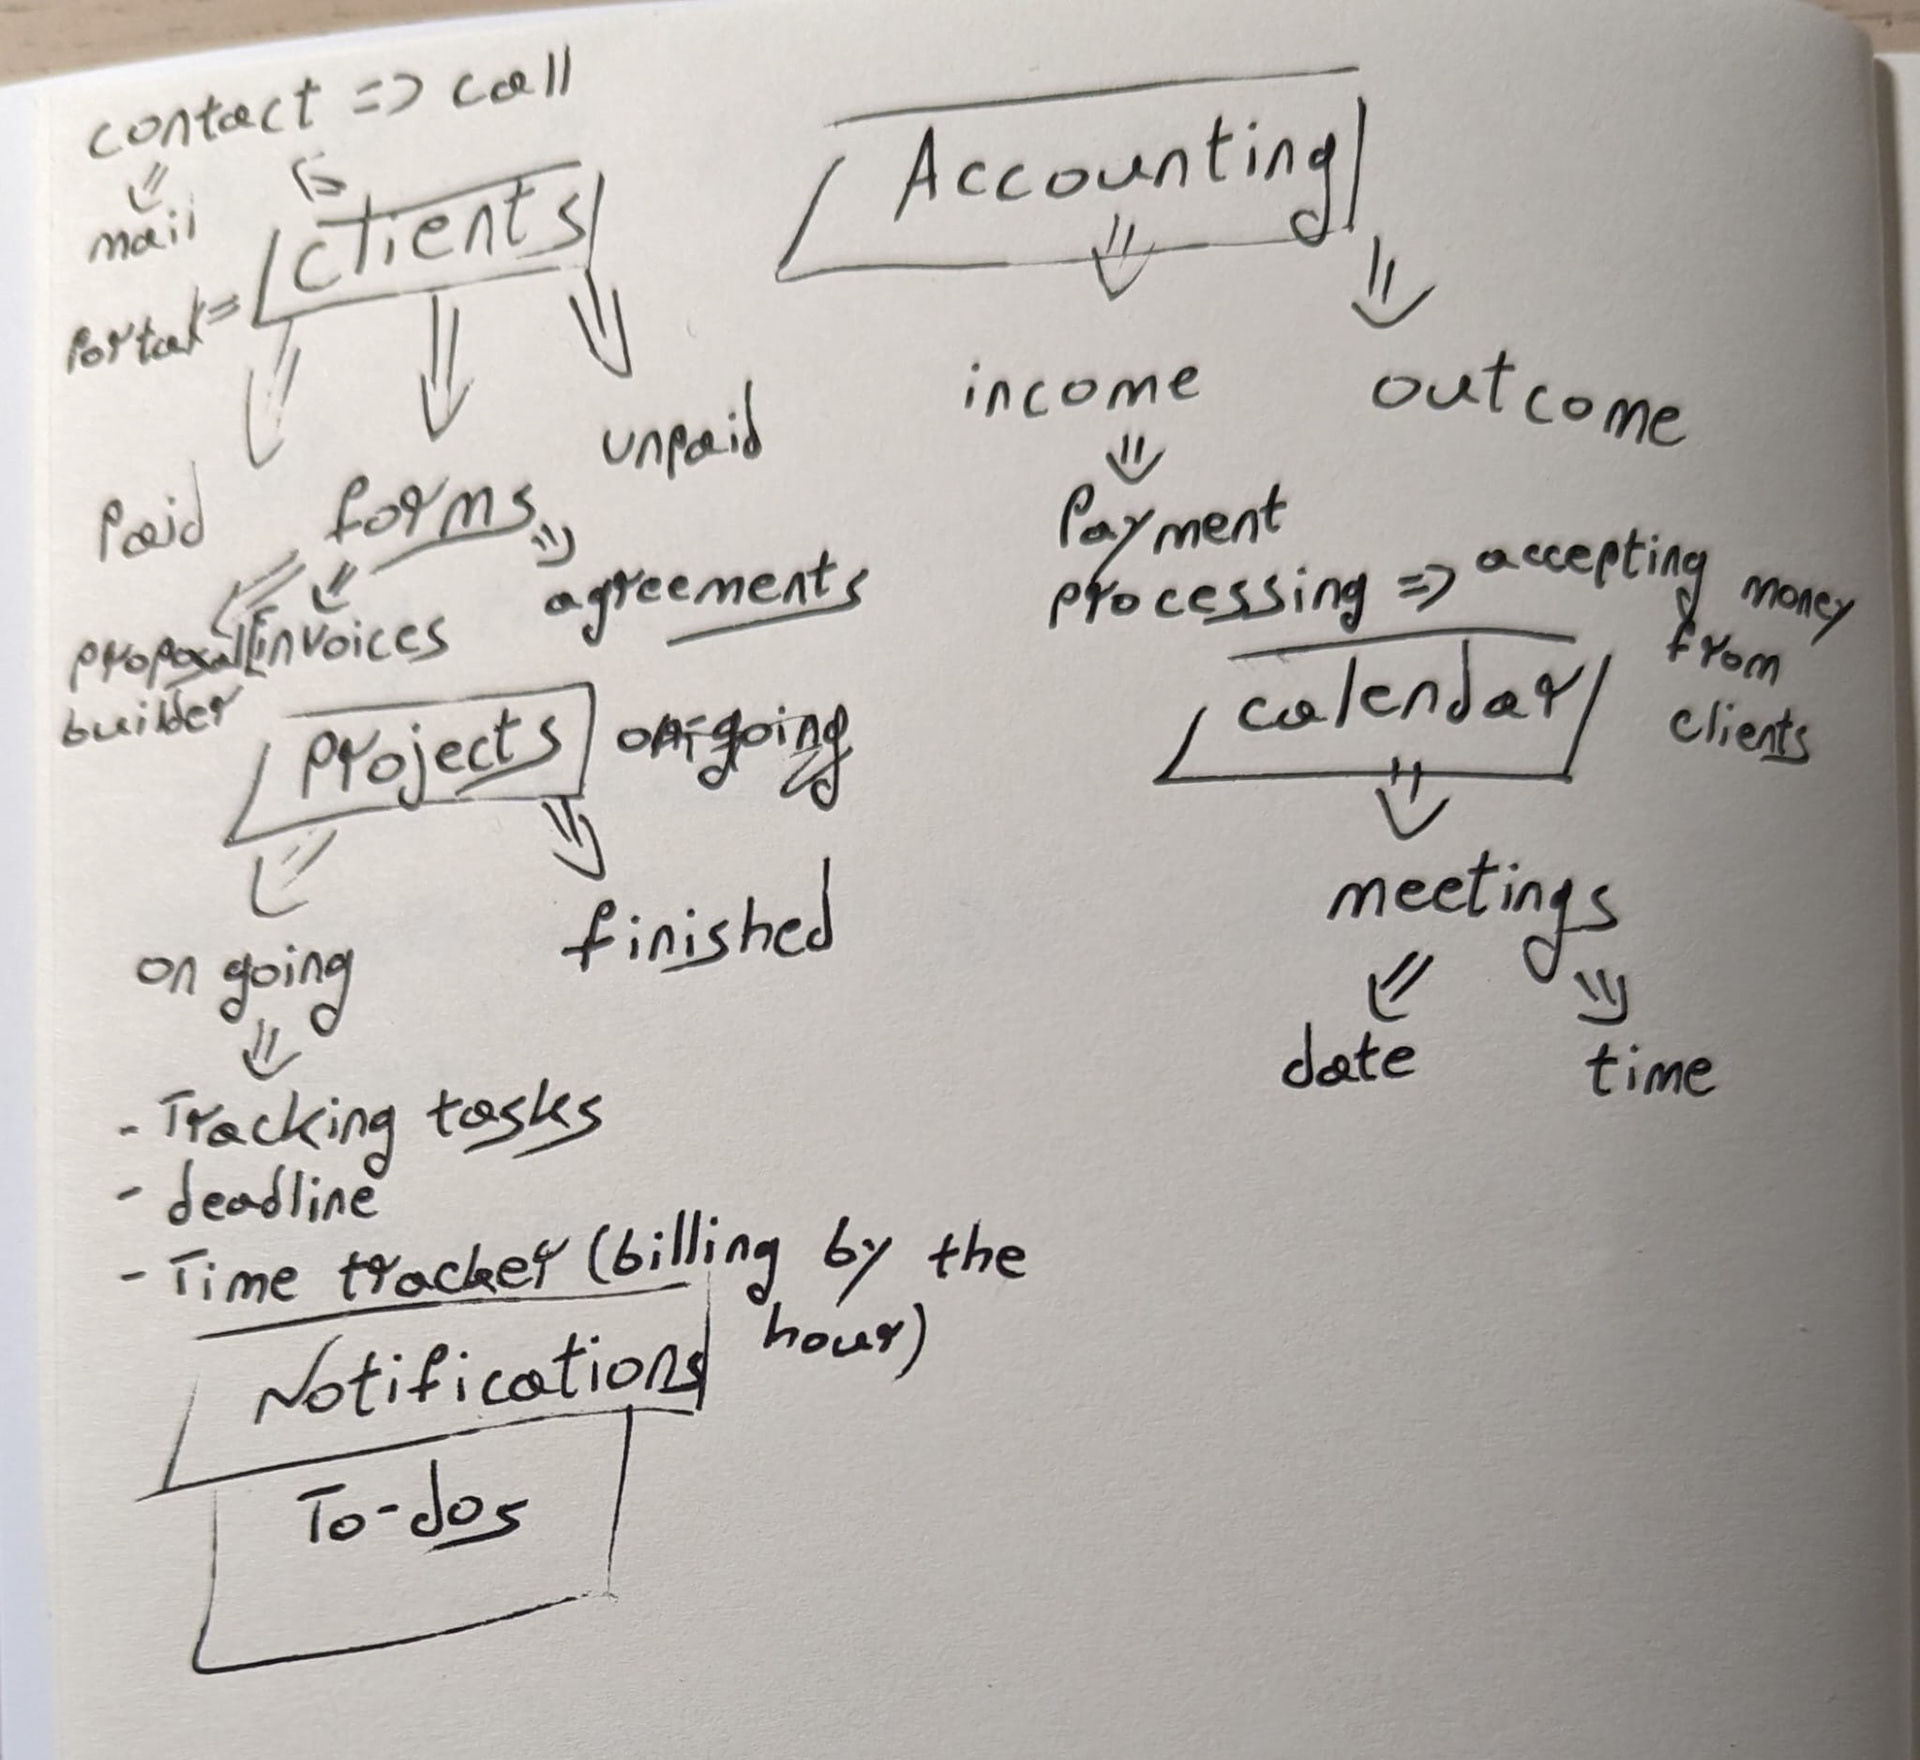 contact => call
mail
clients
Portal
Paid
forms
unpaid
proposal
builder
invoices
agreements
Projects
on-going
on going
finished
- Tracking tasks
- deadline
- Time tracker (billing by the
hour)
Notifications
To-dos
Accounting
income
outcome
Payment
processing => accepting money
from
clients
calendar
meetings
date
time